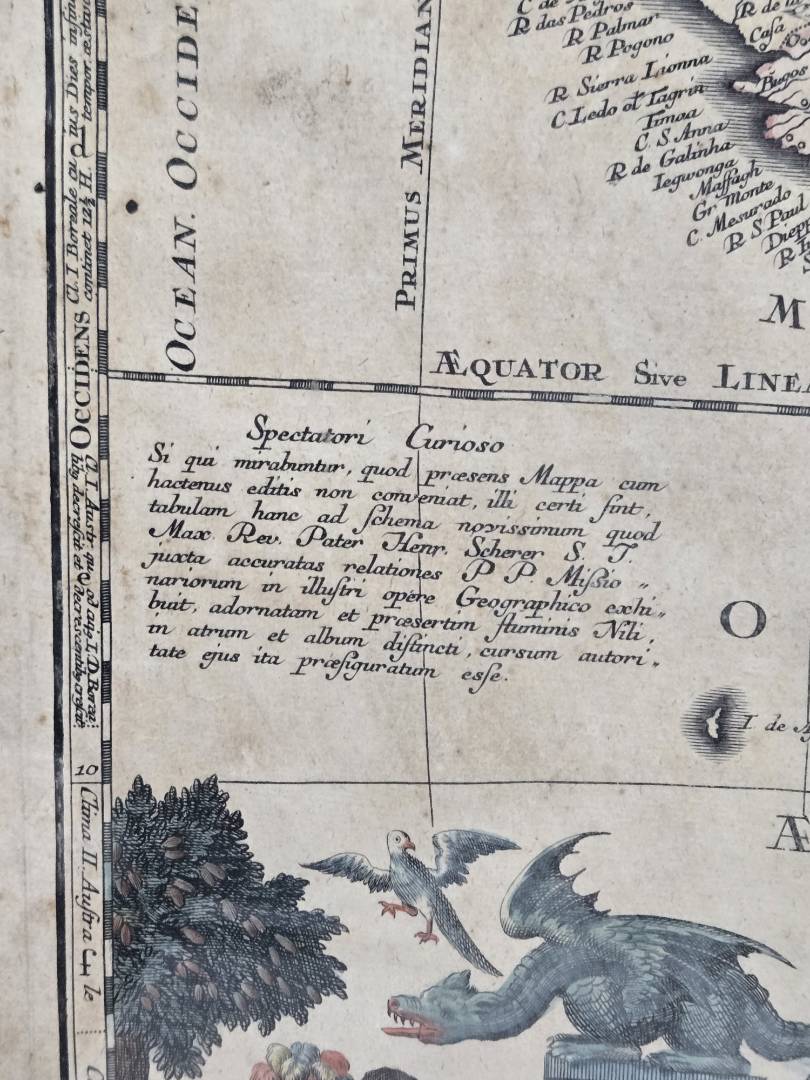 C de
R das Pedros
R Palmar
R Pogono
R Sierra Lionna
C Ledo ol Tagrin
Timoa
C. S. Anna
R de Galinha
Iegwonga
Maſſagh
Gr. Monte
C. Mesurado
R S. Paul
Diepp
R
R de la
Caſa
Bugos
OCEAN. OCCIDE
PRIMUS MERIDIAN
M
ÆQUATOR Sive LINEA
Spectatori Curioso
Si qui mirabuntur, quod præsens Mappa cum
hactenus editis non conveniat, illi certi ſint,
tabulam hanc ad ſchema novissimum quod
Max. Rev. Pater Henr. Scherer S. J.
juxta accuratas relationes P P. Miſsio„
nariorum in illuſtri opere Geographico exhi„
buit, adornatam et præsertim fluminis Nili,
in atrum et album diſtincti, cursum autori„
tate ejus ita præfiguratum eſse.
O
I de
Æ
OCCIDENS
Cl. I Boreale
continet 12½ H.
tus Dies
tempor
Cl. I. Austr.
10
Clima II. Auſtra le